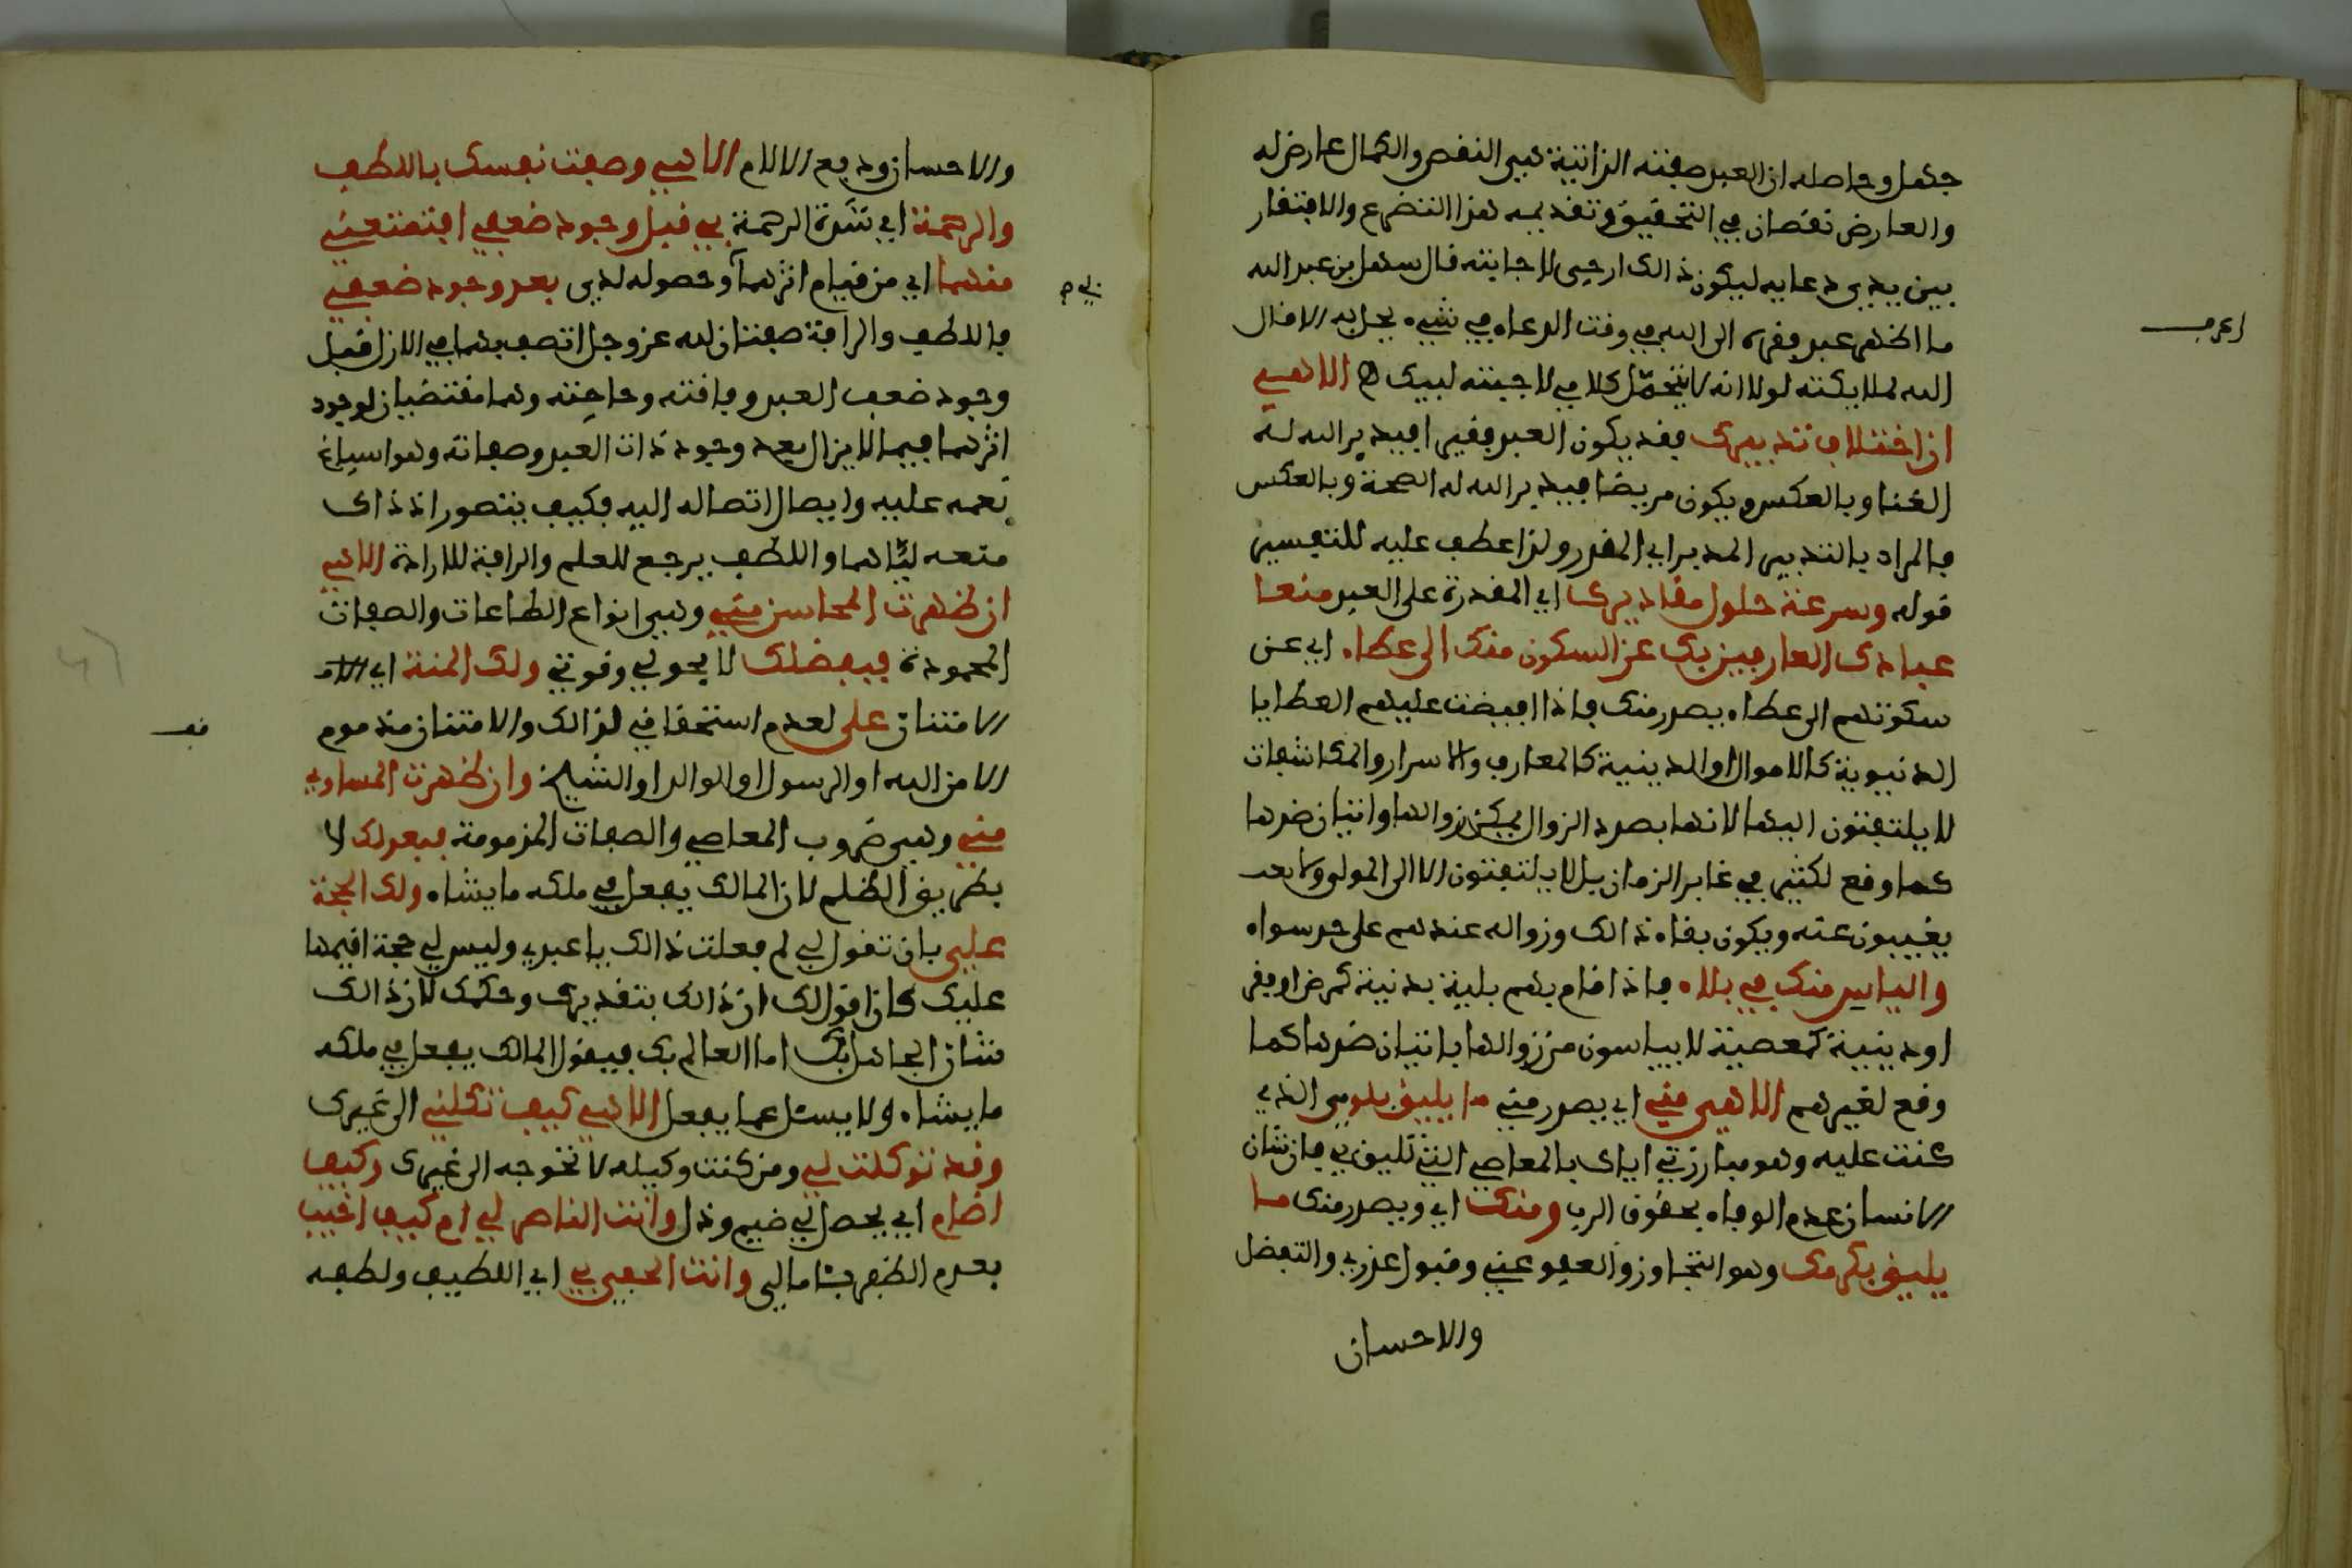 جهل وحاصله ان العبد صفته الذاتية هي النقص والكمال عارض له
والعارض نقصان في التحقيق وتقديمه هذا التضرع والافتقار
بين يدي دعايه ليكون ذالك ارجى للاجابته قال سهل بن عبد الله
ما اظهر عبد فقره الى الله في وقت الدعاء في شيء يحل به الا قال
الله لملايكته لولا انه لا يتحمل كلامي لاجبته لبيك الاهي
ان اختلاف تدبيرك فقد يكون العبد فقيرا فيدبر الله له
الغنا وبالعكس ويكون مريضا فيدبر الله له الصحة وبالعكس
فالمراد بالتدبير المدبر اي المقدر ولذا عطف عليه للتفسير
قوله وسرعة حلول مقاديرك اي المقدرة على العبد منعا
عبادك العارفين بك عن السكون منك الى عطاء اي عن
سكونهم الى عطاء يصدر منك فاذا افيضت عليهم العطايا
الدنيوية كالاموال او الدينية كالمعارف والاسرار والمكاشفات
لا يلتفتون اليها لانها بصدد الزوال يمكن زوالها واتيان ضدها
كما وقع لكثير في غابر الزمان بل لا يلتفتون الا الى المولى ولا بعد
يغيبون عنه ويكون بقاء ذالك وزواله عندهم على حد سواء
والياس منك في بلاء فاذا قام بهم بلية بدنية كمرض او فقر
او دينية كمعصية لا يياسون من زوالها باتيان ضدها كما
وقع لغيرهم الاهي مني اي يصدر مني ما يليق بلومي الذي
كنت عليه وهو مبارزتي اياك بالمعاصي التي تليق بي فان شان
الانسان عدم الوفاء بحقوق الرب ومنك اي ويصدر منك ما
يليق بكرمك وهو التجاوز والعفو عني وقبول عذري والتفضل
والاحسان
اعرف
والاحسان ودفع الالام الاهي وصفت نفسك باللطف
والرحمة اي شدة الرحمة بي قبل وجود ضعفي افتمنعني
منهما اي من قيام اثرهما وحصوله لدي بعد وجود ضعفي
فاللطف والرافة صفتان لله عز وجل اتصف بهما في الازل قبل
وجود ضعف العبد وفاقته وحاجته وهما مقتضيان لوجود
اثرهما فيما لا يزال بعد وجود ذات العبد وصفاته وهو اسباغ
نعمه عليه وايصال اتصاله اليه فكيف يتصور اذ ذاك
منعه اياهما واللطف يرجع للعلم والرافة للارادة الاهي
ان ظهرت المحاسن مني وهي انواع الطاعات والصفات
المحمودة فبفضلك لا بحولي وقوتي ولك المنة اي
الامتنان علي لعدم استحقاقي لذالك والامتنان مذموم
الا من الله او الرسول او الوالد او الشيخ وان ظهرت المساوي
مني وهي ضروب المعاصي والصفات المذمومة فبعدلك لا
بطريق الظلم لان المالك يفعل في ملكه ما يشاء ولك الحجة
علي بان تقول لي لم فعلت ذالك يا عبدي وليس لي حجة اقيمها
عليك كان اقول لك ان ذالك بتقديرك وحكمك لان ذالك
شان الجاهل بك اما العالم بك فيقول المالك يفعل في ملكه
ما يشاء ولا يسئل عما يفعل الاهي كيف تكلني الى غيرك
وقد توكلت لي ومن كنت وكيله لا تحوجه الى غيرك وكيف
اضام اي يحصل لي ضيم وذل وانت الناصر لي ام كيف اخيب
بعدم الظفر بشامالي وانت الحفي بي اي اللطيف ولطفه
قف